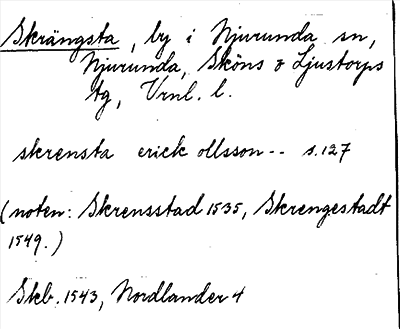 Skrängsta, by i Njurunda sn,
Njurunda, Sköns o Ljustorps
tg, Vrnl. l.
skrensta erick ollsson-- s.127
(noten: Skrensstad 1535, Skrengestadt
1549.)
Skb. 1543, Nordlander 4